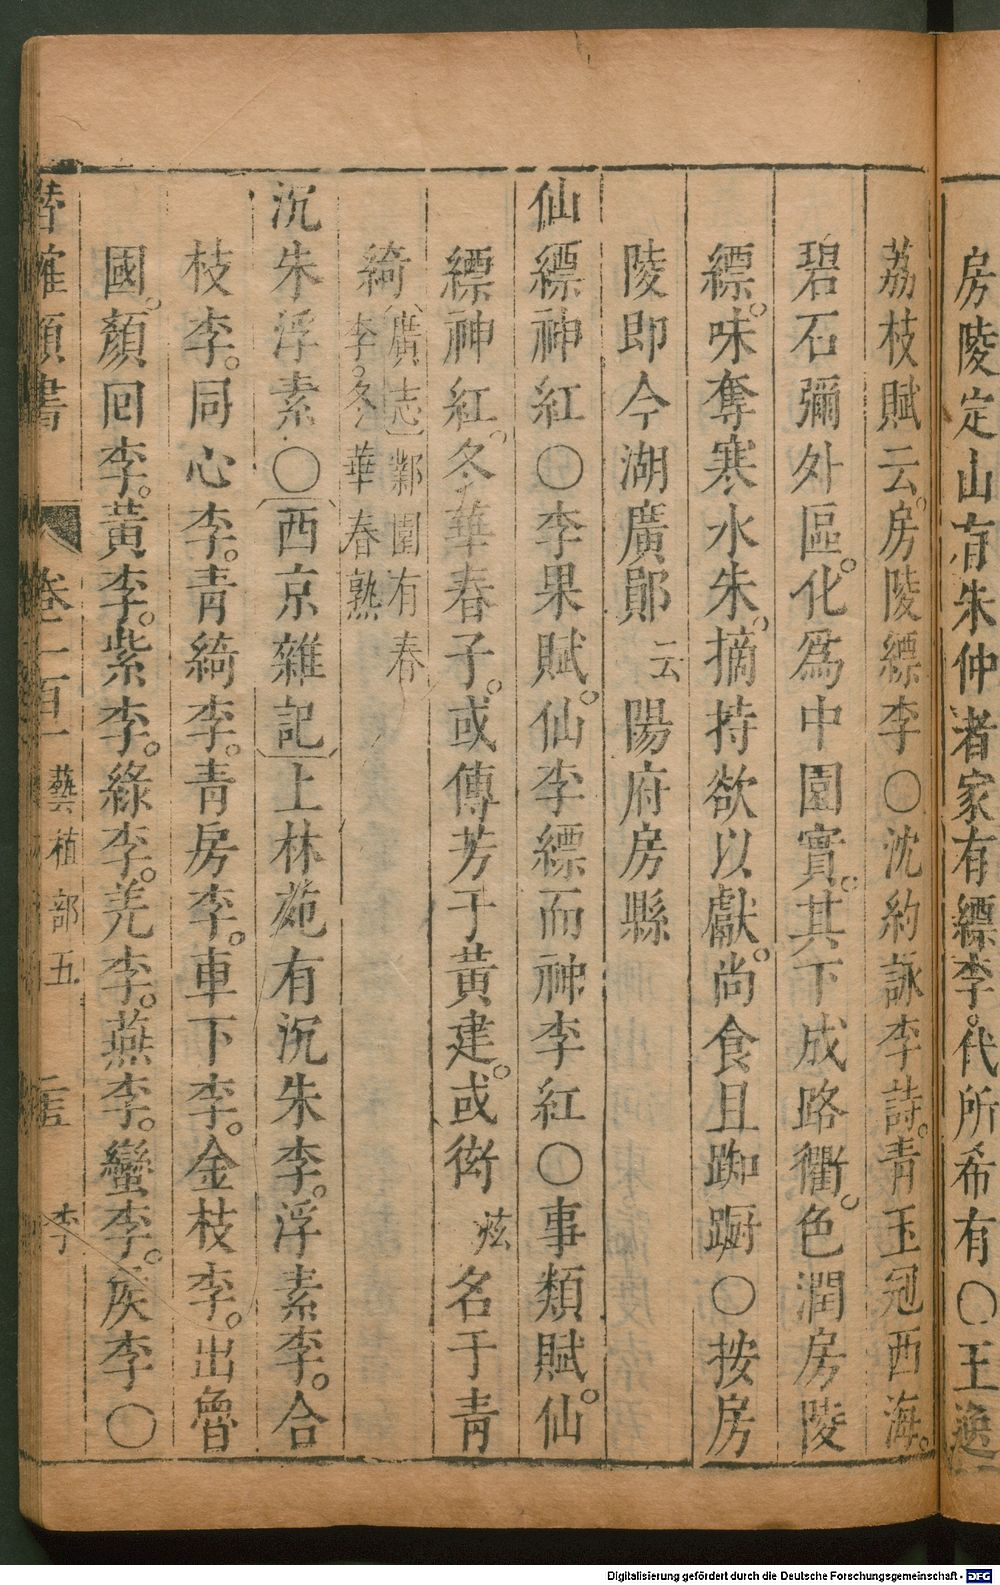 房陵定山有朱仲者家有縹李。代所希有○王逸
荔枝賦云。房陵縹李○沈約詠李詩。青玉冠西海。
碧石彌外區。化爲中園實。其下成路衢。色潤房陵
縹。味奪寒水朱。摘持欲以獻。尚食且踟躕○按房
陵即今湖廣鄖云陽府房縣
仙縹神紅○李果賦。仙李縹而神李紅○事類賦。仙
縹神紅。冬華春子。或傳芳于黃建。或衒炫名于青
綺(廣志)鄴園有春
李。冬華春熟
沉朱浮素○(西京雜記)上林苑有沉朱李。浮素李。合
枝李。同心李。青綺李。青房李。車下李。金枝李。出魯
國。顏回李。黃李。紫李。綠李。羌李。燕李。蠻李。矦李○
潛確類書 卷一百一 藝植部五 李
Digitalisierung gefördert durch die Deutsche Forschungsgemeinschaft - DFG